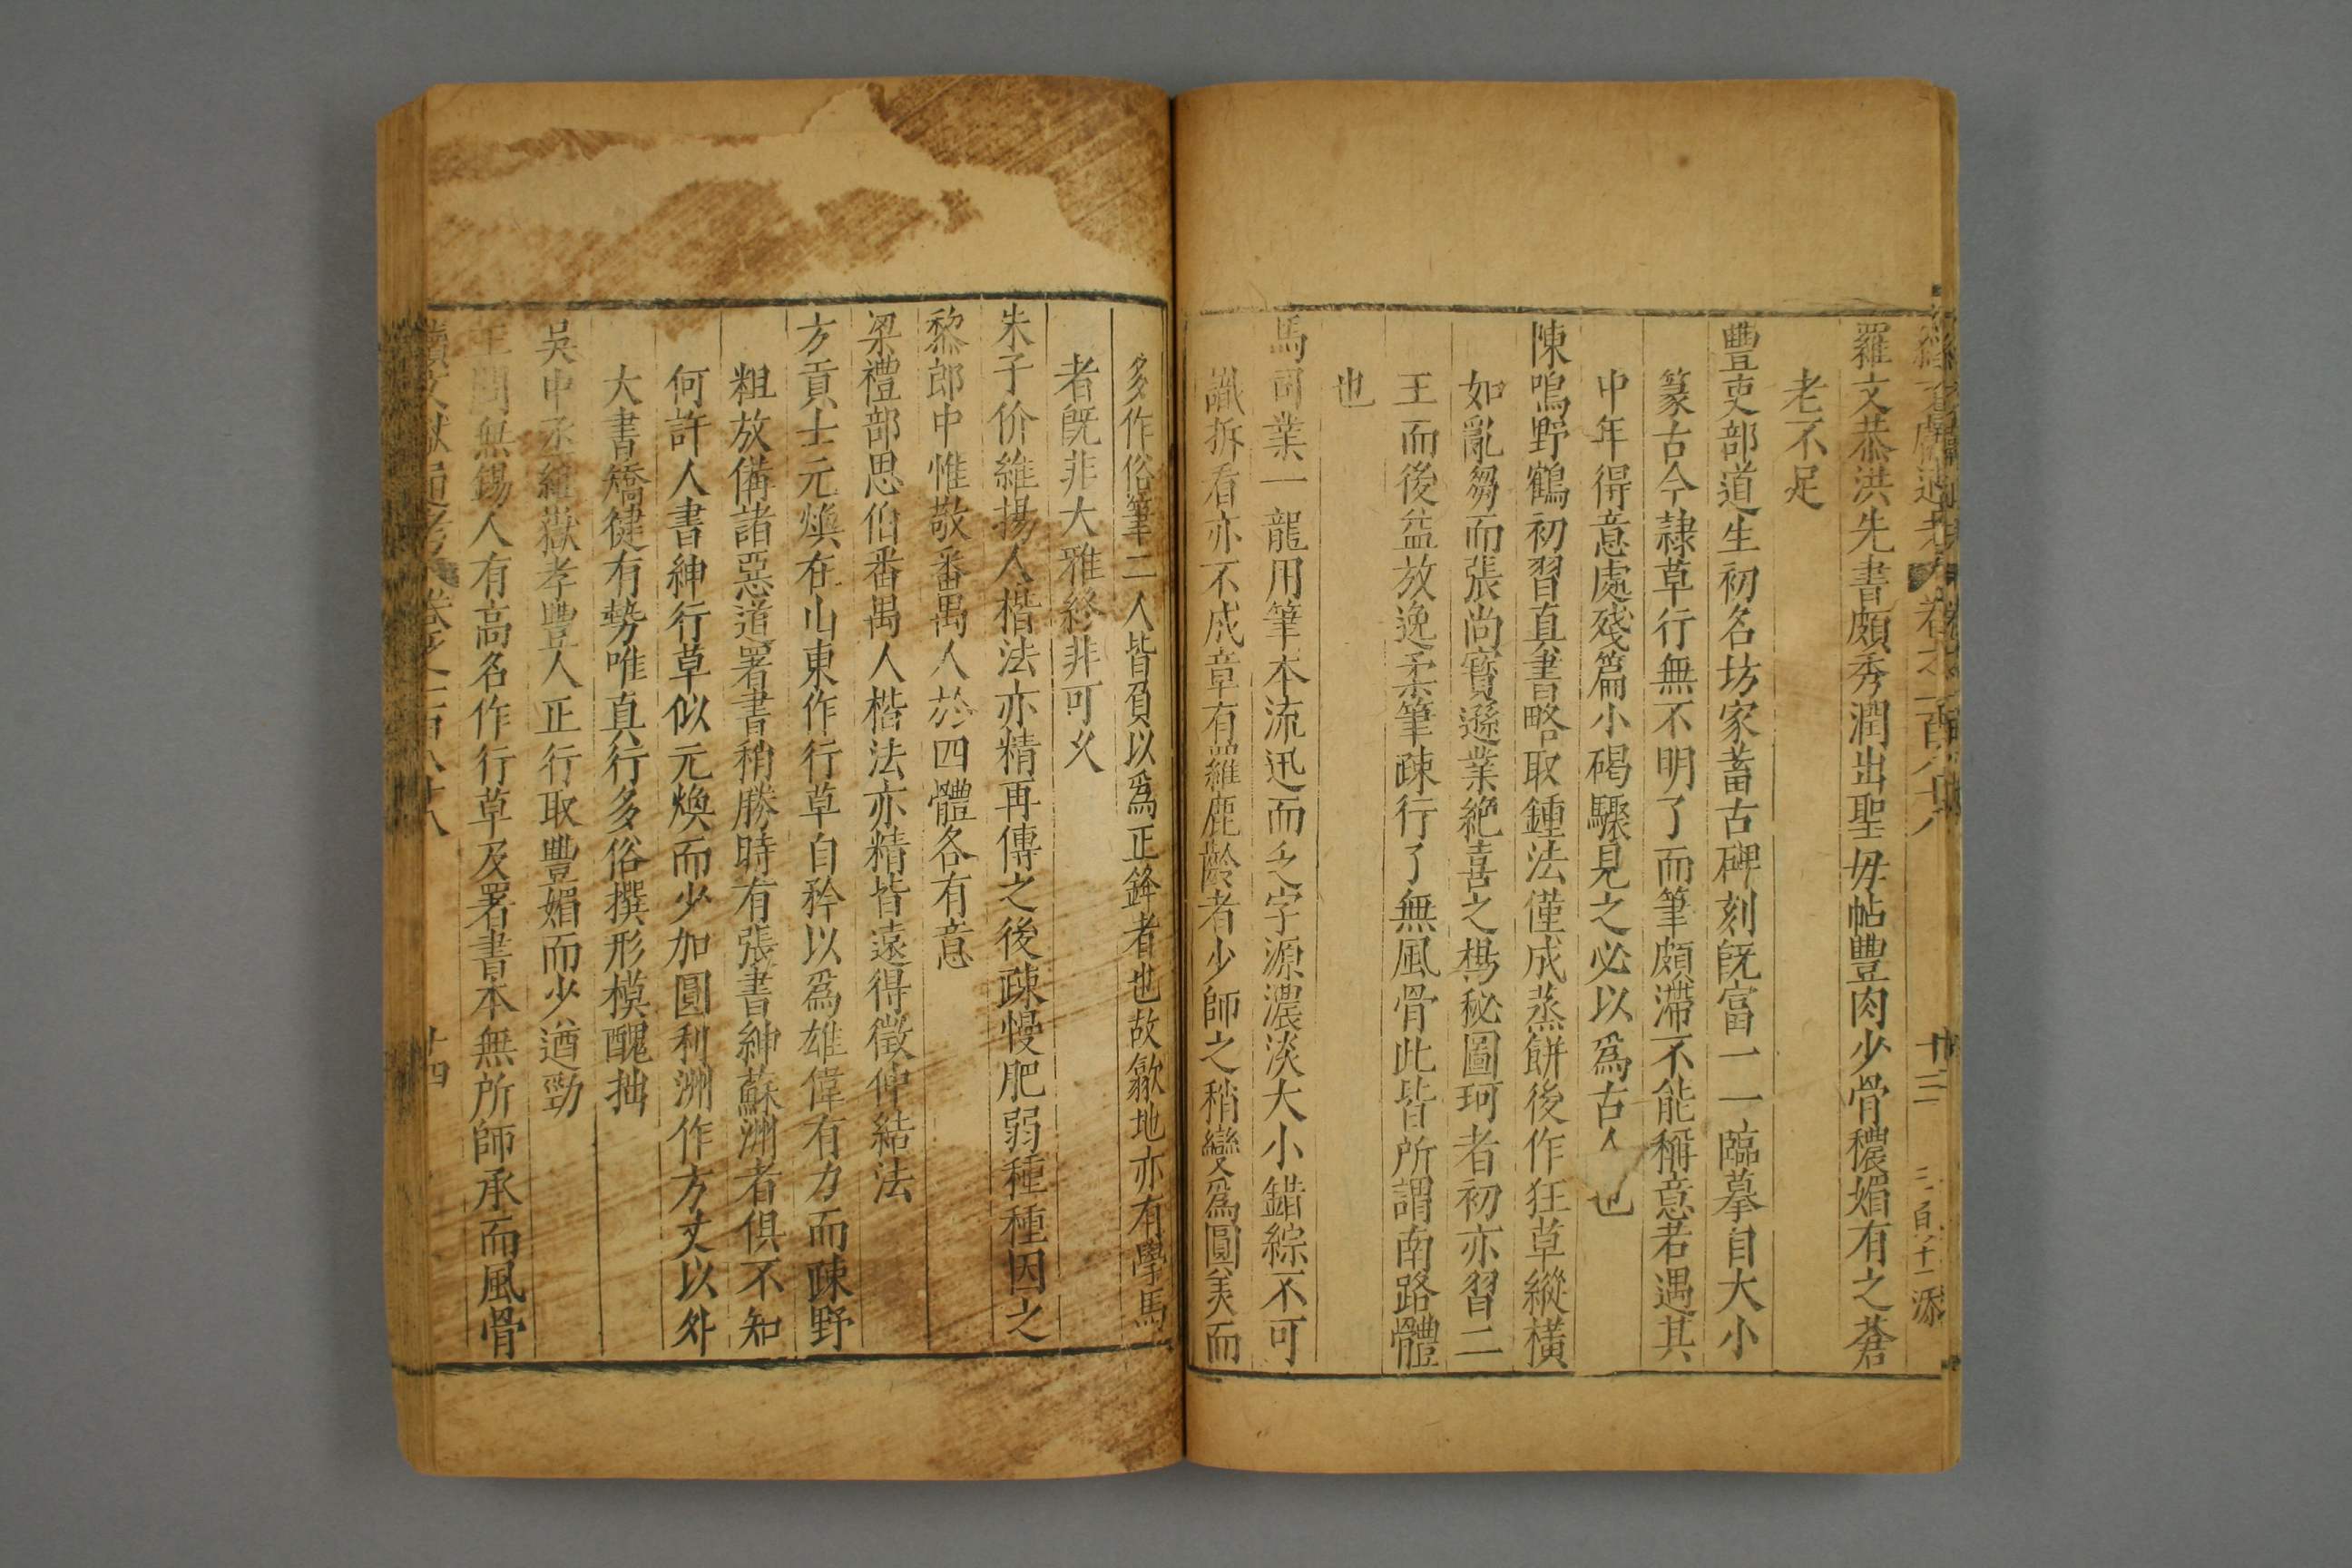 續文獻通考 卷之一百八十八 十三 三百卒十一添
羅文恭洪先書頗秀潤出聖毋帖豐肉少骨穠媚有之蒼
老不足
豐吏部道生初名坊家蓄古碑刻既富一一臨摹自大小
篆古今隷草行無不明了而筆頗滯不能稱意若遇其
中年得意處殘篇小碣驟見之必以爲古人也
陳鳴野鶴初習真書略取鍾法僅成蒸餅後作狂草縱橫
如亂芻而張尚寳遜業絶喜之楊秘圖珂者初亦習二
王而後益放逸柔筆疎行了無風骨此皆所謂南路體
也
馬司業一龍用筆本流迅而乏字源濃淡大小錯綜不可
識拆看亦不成章有羅鹿齡者少師之稍變爲圓美而
多作俗筆二人皆負以爲正鋒者也故歙地亦有學馬
者既非大雅終非可乂
朱子价維揚人楷法亦精再傳之後疎慢肥弱種種因之
黎郎中惟敬番禺人於四體各有意
梁禮部思伯番禺人楷法亦精皆遠得徵仲結法
方貢士元煥在山東作行草自矜以爲雄偉有力而疎野
粗放備諸惡道署書稍勝時有張書紳蘇洲者俱不知
何許人書紳行草似元煥而少加圓利洲作方丈以外
大書矯徤有勢唯真行多俗撰形模醜拙
吳中丞維嶽孝豐人正行取豐媚而少遒勁
王問無錫人有高名作行草及署書本無所師承而風骨
續文獻通考 卷之一百八十八 十四